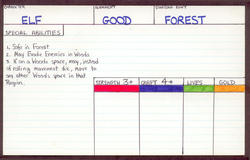 CHARACTER ALIGNMENT START POINT
ELF GOOD FOREST
SPECIAL ABILITIES
1. Safe in Forest
2. May Evade Enemies in Woods
3. If on a Woods space, may, instead
of rolling movement die, move to
any other Woods space in that
Region.
STRENGTH 3+ CRAFT 4+ LIVES GOLD